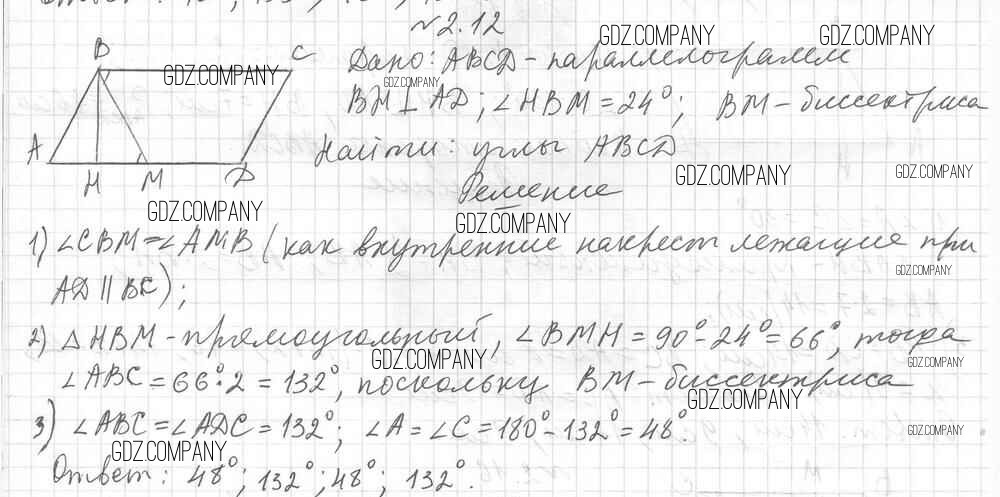 №2.12
B C
A H M D
Дано: ABCD - параллелограмм
BH ⊥ AD; ∠HBM = 24°; BM - биссектриса
Найти: углы ABCD
Решение
1) ∠CBM = ∠AMB (как внутренние накрест лежащие при
AD || BC);
2) △HBM - прямоугольный, ∠BMH = 90° - 24° = 66°, тогда
∠ABC = 66°·2 = 132°, поскольку BM - биссектриса
3) ∠ABC = ∠ADC = 132°; ∠A = ∠C = 180° - 132° = 48°.
Ответ: 48°; 132°; 48°; 132°.
GDZ.COMPANY
GDZ.COMPANY
GDZ.COMPANY
GDZ.COMPANY
GDZ.COMPANY
GDZ.COMPANY
GDZ.COMPANY
GDZ.COMPANY
GDZ.COMPANY
GDZ.COMPANY
GDZ.COMPANY
GDZ.COMPANY
GDZ.COMPANY
GDZ.COMPANY